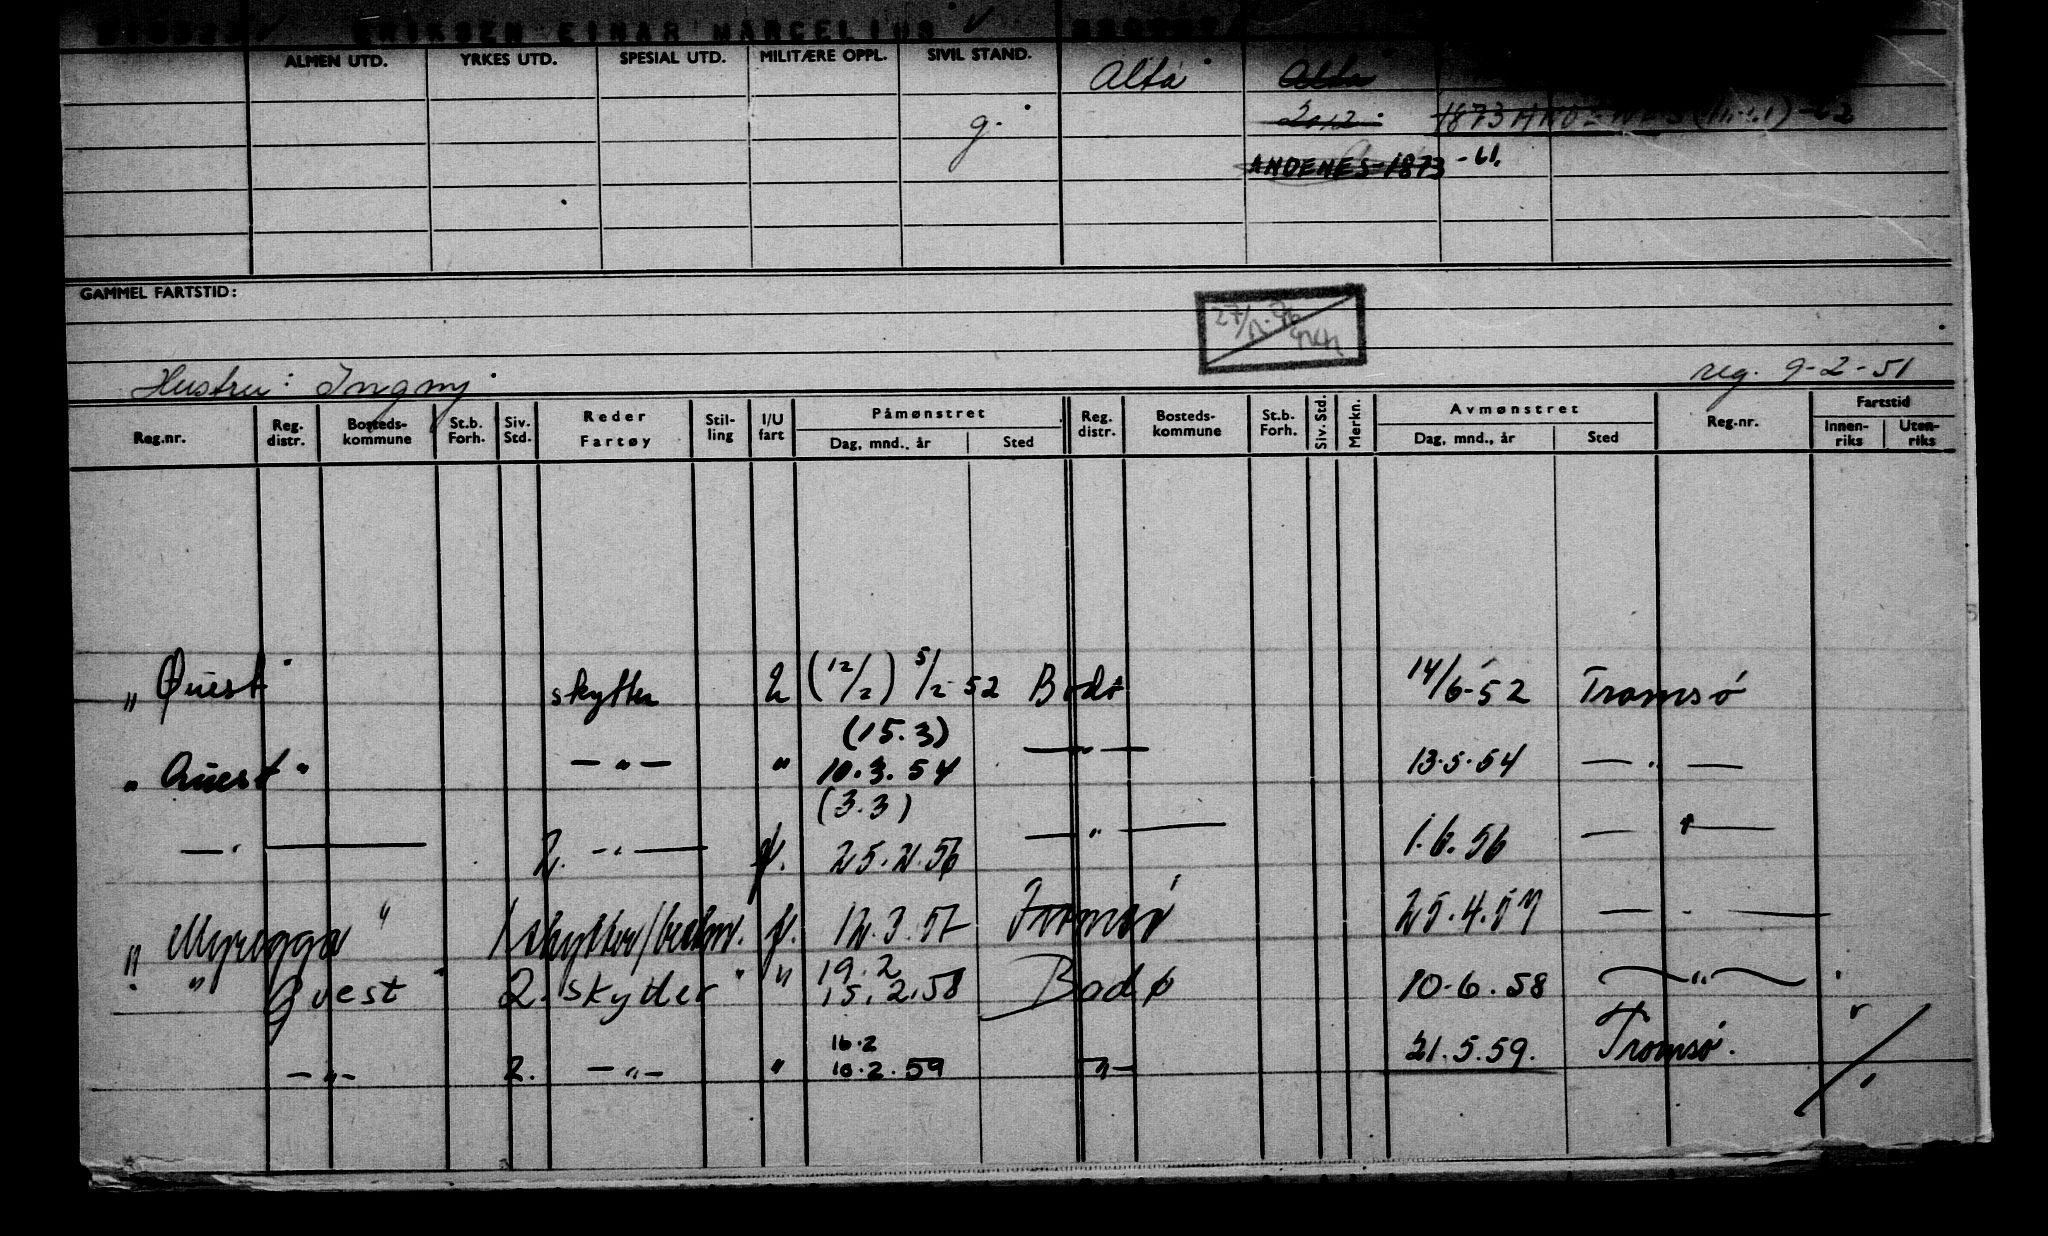 ERIKSEN EINAR MARCELIUS
ALMEN UTD. YRKES UTD. SPESIAL UTD. MILITÆRE OPPL. SIVIL STAND.
Alta Alta
g. 2012 1873 ANDENES -62
ANDENES-1873 -61.
GAMMEL FARTSTID:
Hustru: Ingny reg. 9-2-51
Reg.nr. Reg. distr. Bosteds-kommune St.b. Forh. Siv. Std. Reder Fartøy Stil-ling I/U fart Påmønstret Dag, mnd., år Sted Reg. distr. Bosteds-kommune St.b. Forh. Siv. Std. Merkn. Avmønstret Dag, mnd., år Sted Reg.nr. Fartstid Innen-riks Uten-riks
„ Quest " skytter (12/2) 5/2-52 Bodø 14/6-52 Tromsø
(15.3)
„ Quest " — " — " 10.3.54 — " — 13.5.54 — " —
(3.3)
— " — 2. — " — 25.2.56 — " — 1.6.56 — " —
„ Myregga " 1 skytter/ 12.3.57 Tromsø 25.4.57 — " —
19.2
" " Quest " 2. skytter " " 15.2.58 Bodø 10.6.58 — " —
16.2
— " — 2. — " — " 10.2.59 — " — 21.5.59. Tromsø.